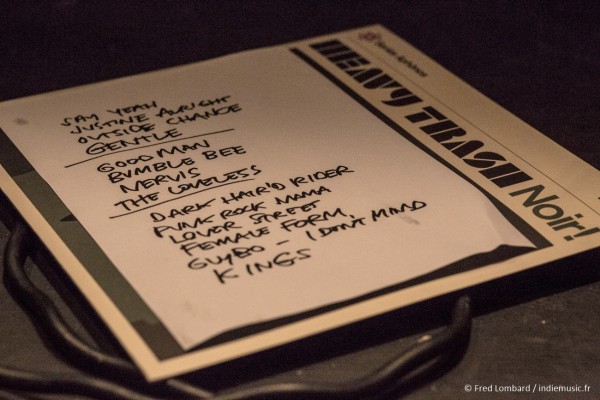 SAY YEAH
JUSTINE ALRIGHT
OUTSIDE CHANCE
GENTLE
GOOD MAN
BUMBLE BEE
NERVIS
THE LOVELESS
DARK HAIR'D RIDER
PUNK ROCK MAMA
LOVER STREET
FEMALE FORM
GUYBO - I DON'T MIND
KINGS
HEAVY TRASH
Noir!
© Fred Lombard / indiemusic.fr